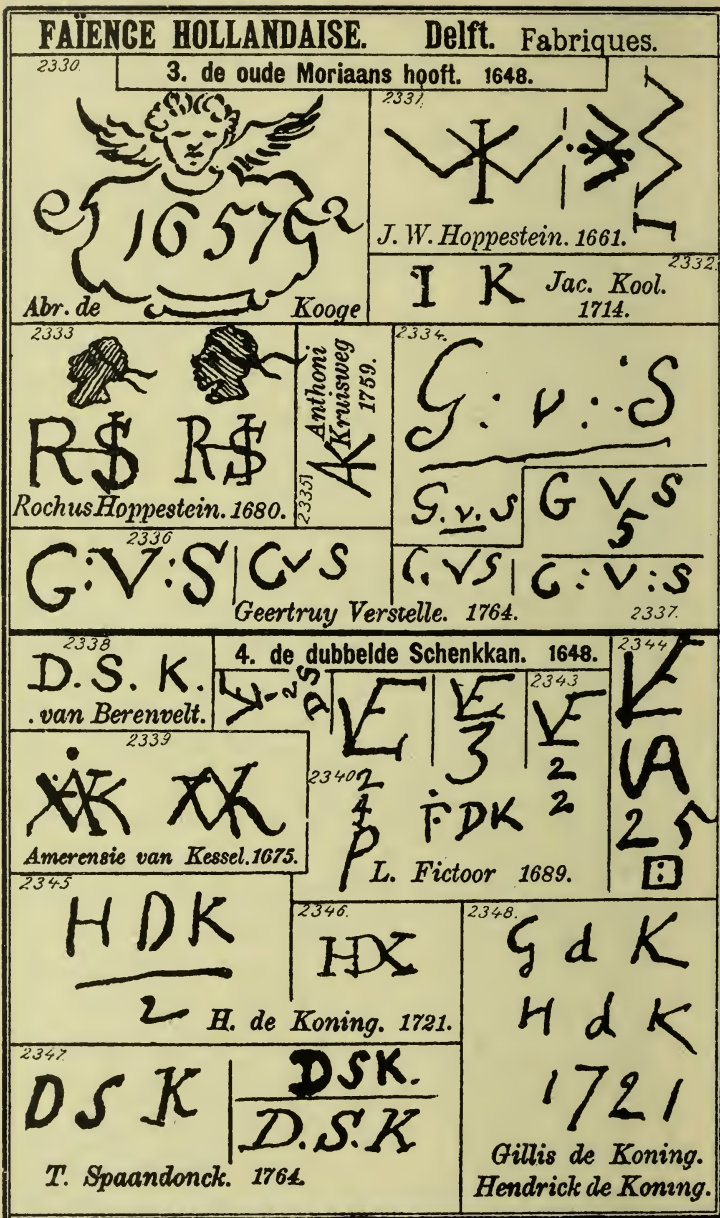 FAÏENCE HOLLANDAISE. Delft. Fabriques.
3. de oude Moriaans hooft. 1648.
2330
1657
Abr. de Kooge
2331
J. W. Hoppestein. 1661.
2332
I K Jac. Kool.
1714.
2333
RHS RHS
Rochus Hoppestein. 1680.
2335
Anthoni
Kruisweg
1759.
AK
2334.
G : v : S
G. v. S
G V S
5
2336
G:V:S GvS G.VS G:V:S
Geertruy Verstelle. 1764.
2337.
2338
D. S. K.
. van Berenvelt.
4. de dubbelde Schenkkan. 1648.
2339
AK AVK
Amerensie van Kessel. 1675.
2340
VE 2 DS
VE
2
4
P
VE
3
F DK
2343
VE
2
2
L. Fictoor 1689.
2344
VE
VA
2 5
2345
H D K
2
H. de Koning. 1721.
2346.
HDK
2347
D S K
DSK.
D.S.K
T. Spaandonck. 1764.
2348.
G d K
H d K
1721
Gillis de Koning.
Hendrick de Koning.